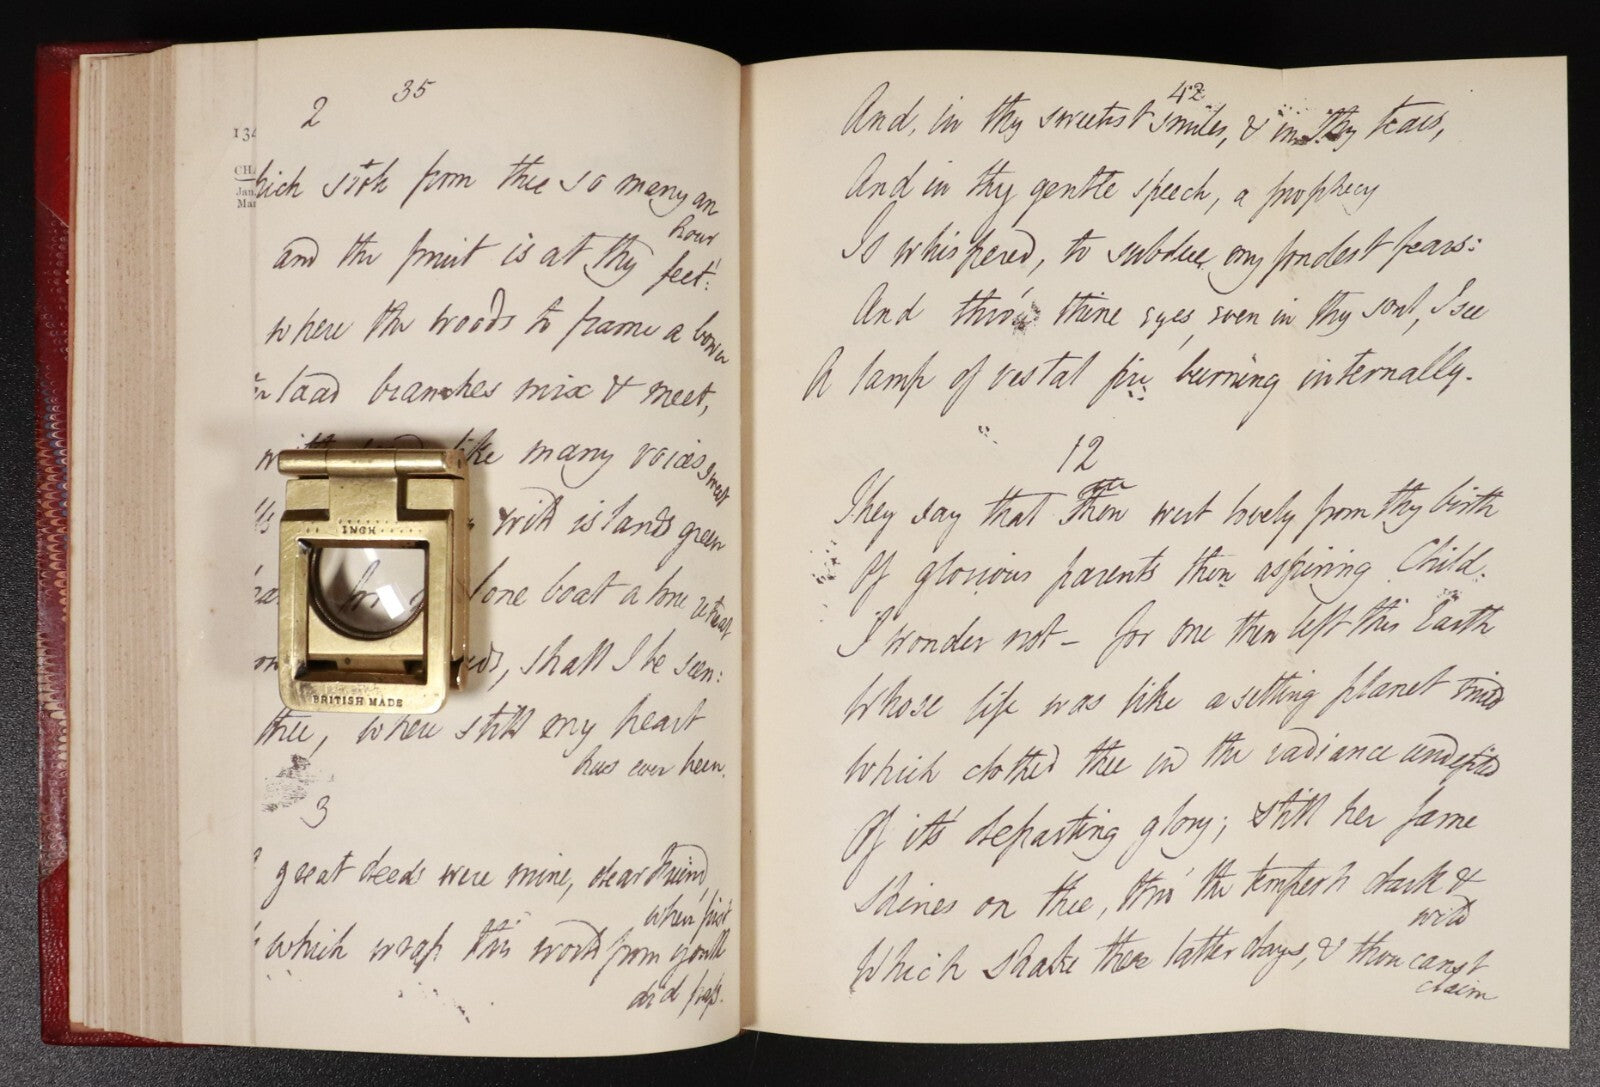 2
35
134
CHA
Jan
Mar
hich took from thee so many an
hour
and the fruit is at thy feet!
where the woods to frame a bower
laad branches mix & meet,
like many voices sweet
with islands green
for lone boat a lone retreat
shall I be seen:
thee, where still my heart
has ever been.
3
great deeds were mine, dear Friend,
when first
which wrap this world from youth
did pass.
INCH
BRITISH MADE
42
And, in thy sweetest smiles, & in thy tears,
And in thy gentle speech, a prophecy
Is whispered, to subdue my fondest fears:
And thro' thine eyes, even in thy soul, I see
A lamp of vestal fire burning internally.
12
They say that thou wert lovely from thy birth
Of glorious parents thou aspiring Child.
I wonder not — for one then left this Earth
Whose life was like a setting planet mild
Which clothed thee in the radiance undefiled
Of its' departing glory; still her fame
Shines on thee, thro' the tempests dark &
wild
Which shake these latter days, & thou canst
claim